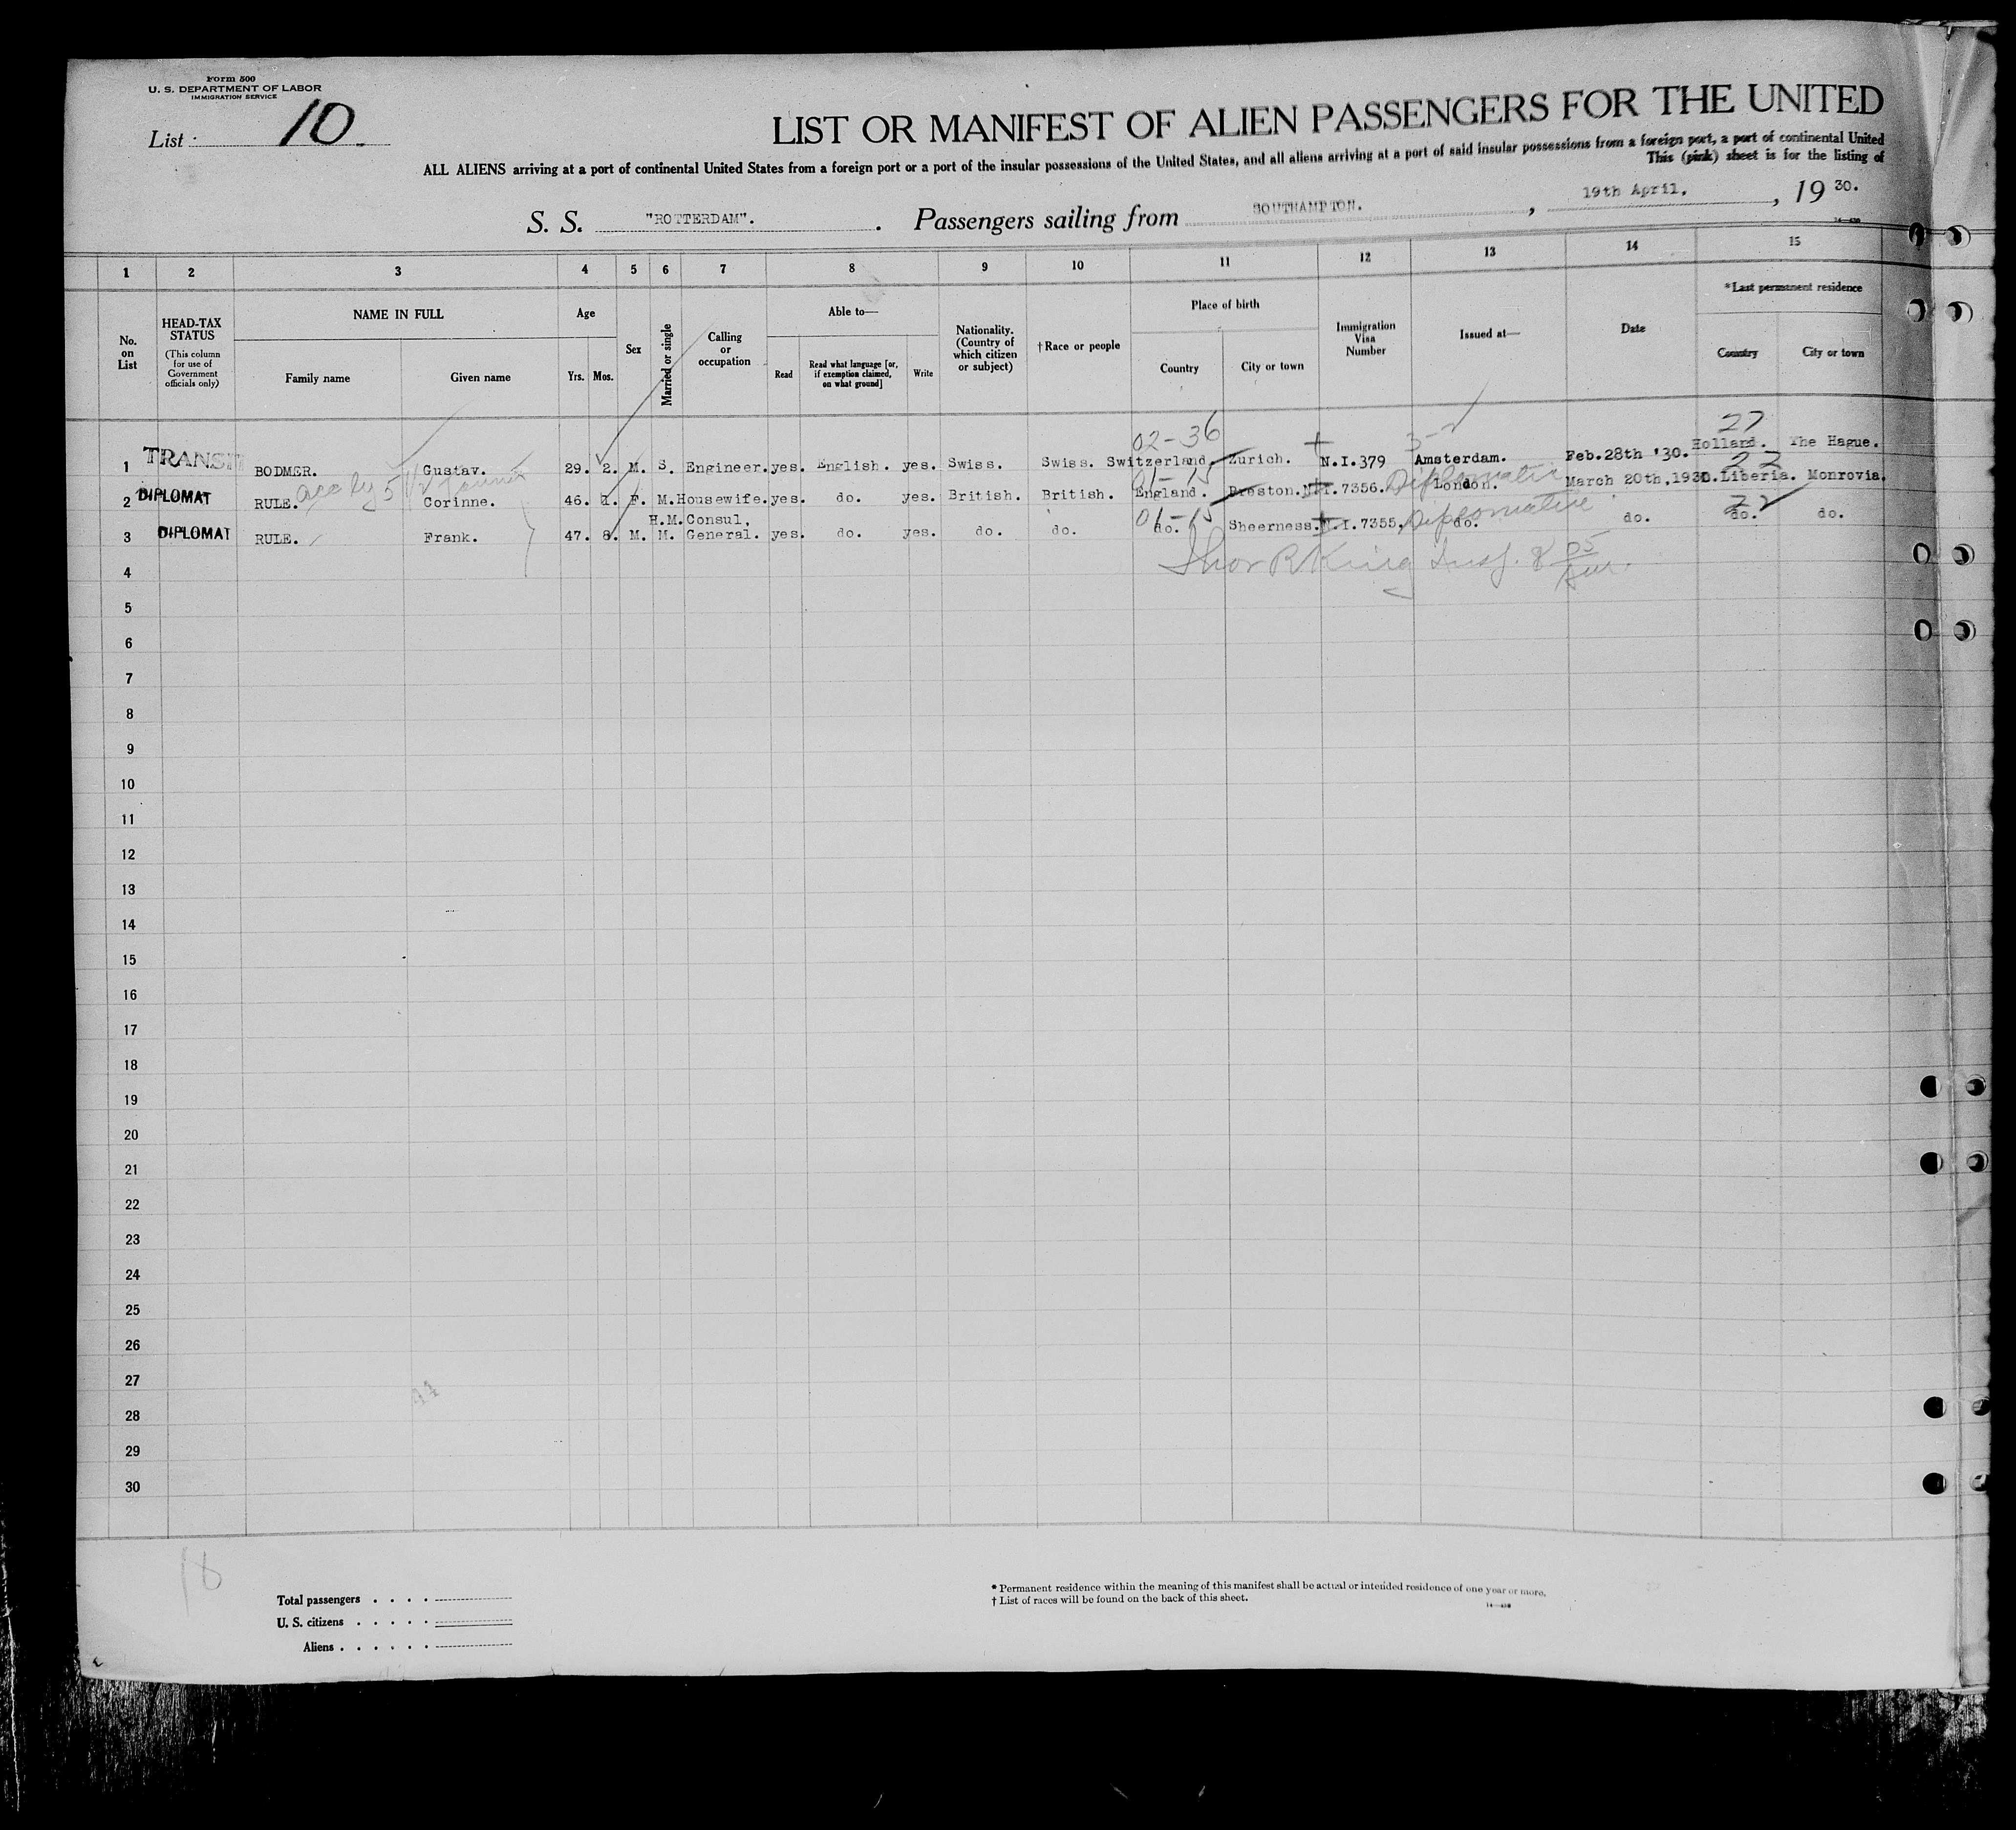 Form 500
U. S. DEPARTMENT OF LABOR
IMMIGRATION SERVICE
List 10.
LIST OR MANIFEST OF ALIEN PASSENGERS FOR THE UNITED
ALL ALIENS arriving at a port of continental United States from a foreign port or a port of the insular possessions of the United States, and all aliens arriving at a port of said insular possessions from a foreign port, a port of continental United
This (pink) sheet is for the listing of
S. S. "ROTTERDAM". Passengers sailing from SOUTHAMPTON. , 19th April, , 19 30.
1 2 3 4 5 6 7 8 9 10 11 12 13 14 15
No. on List
HEAD-TAX STATUS
(This column for use of Government officials only)
NAME IN FULL
Family name Given name
Age
Yrs. Mos.
Sex
Married or single
Calling or occupation
Able to—
Read
Read what language [or, if exemption claimed, on what ground]
Write
Nationality. (Country of which citizen or subject)
†Race or people
Place of birth
Country City or town
Immigration Visa Number
Issued at—
Date
*Last permanent residence
Country City or town
02-36 3-2 27
1 TRANSIT BODMER. Gustav. 29. 2. M. S. Engineer. yes. English. yes. Swiss. Swiss. Switzerland. Zurich. N.I.379 Amsterdam. Feb.28th '30. Holland. The Hague.
01-15 Diplomatic 22
2 DIPLOMAT RULE. Corinne. 46. 1. F. M. Housewife. yes. do. yes. British. British. England. Preston. N.I.7356. London. March 20th,1930. Liberia. Monrovia.
01-15 Diplomatic 22
3 DIPLOMAT RULE. Frank. 47. 8. M. M. H.M.Consul, General. yes. do. yes. do. do. do. Sheerness. N.I.7355, do. do. do. do.
4
R King Insp.
5
6
7
8
9
10
11
12
13
14
15
16
17
18
19
20
21
22
23
24
25
26
27
28
29
30
Total passengers . . . .
U. S. citizens . . . . .
Aliens . . . . . .
* Permanent residence within the meaning of this manifest shall be actual or intended residence of one year or more.
† List of races will be found on the back of this sheet.